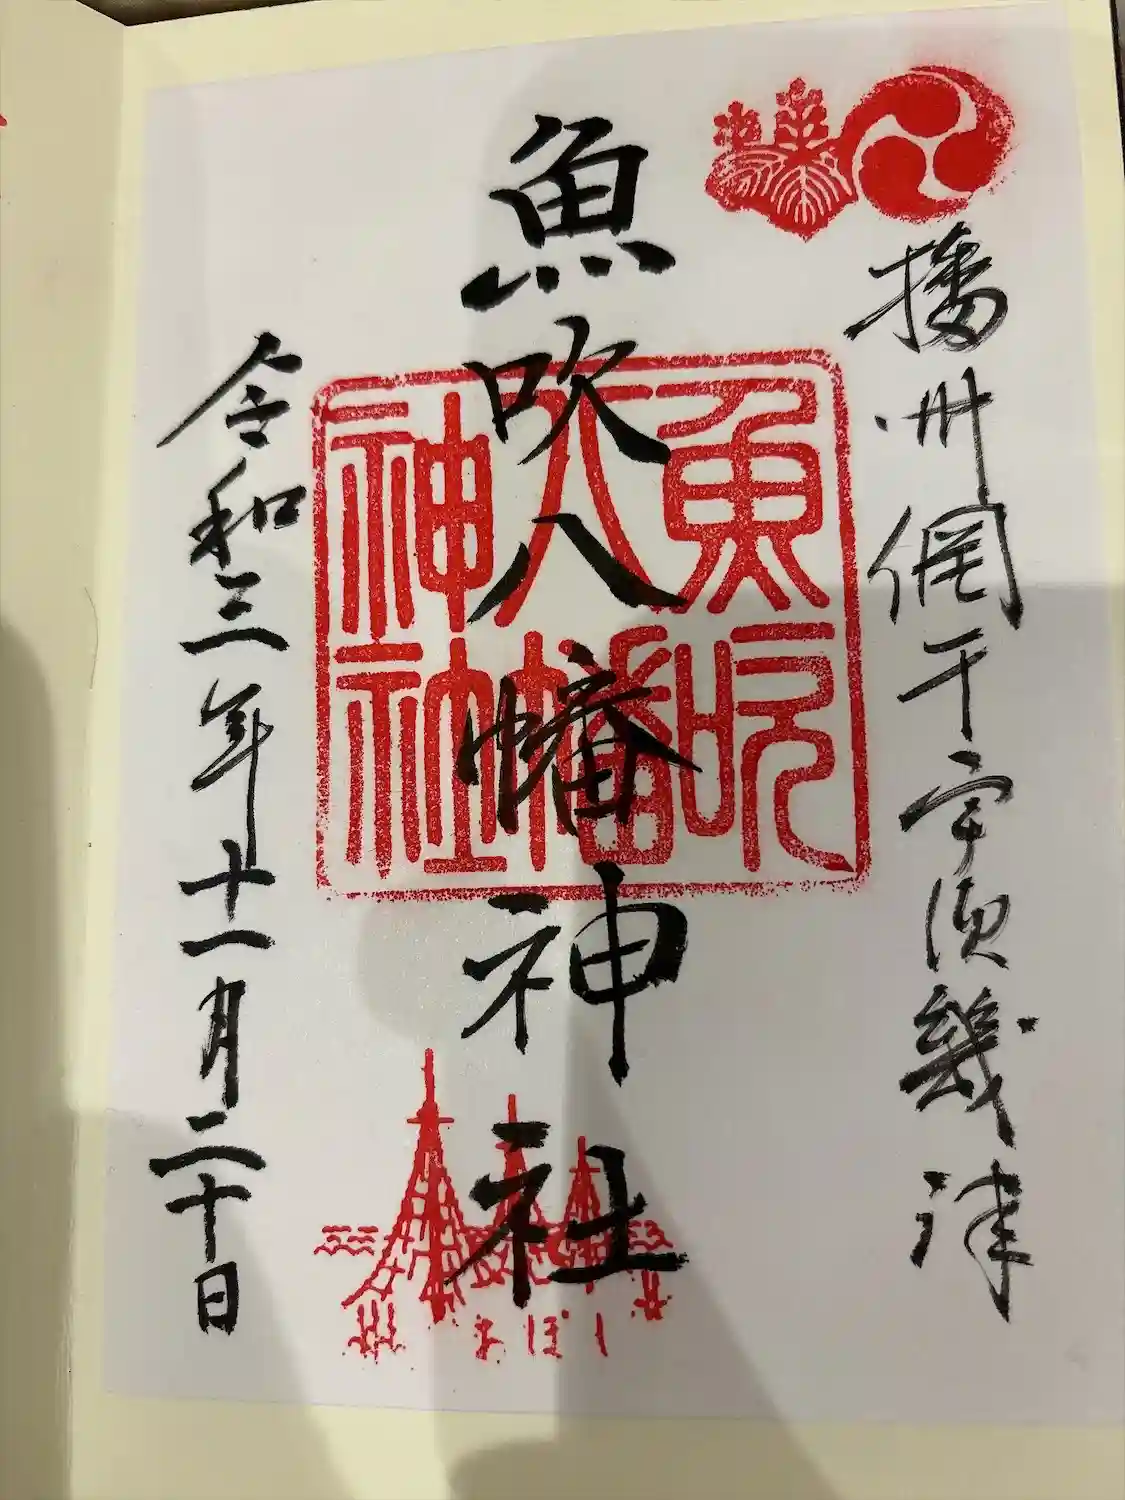 播州網干宇須幾津
魚吹八幡神社
令和三年十一月二十日
魚吹
八幡
神社